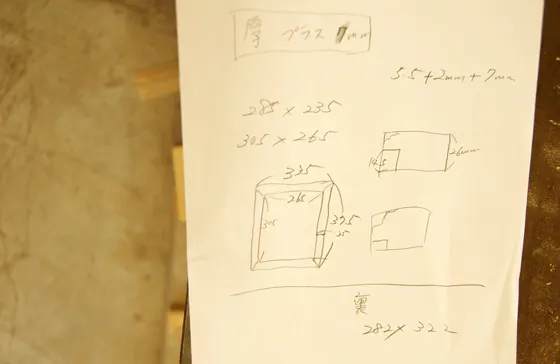 厚 プラス 7mm
5.5+2mm+7mm
285×235
305×265
335
265
305
375
35
14.5
26mm
裏
282×322